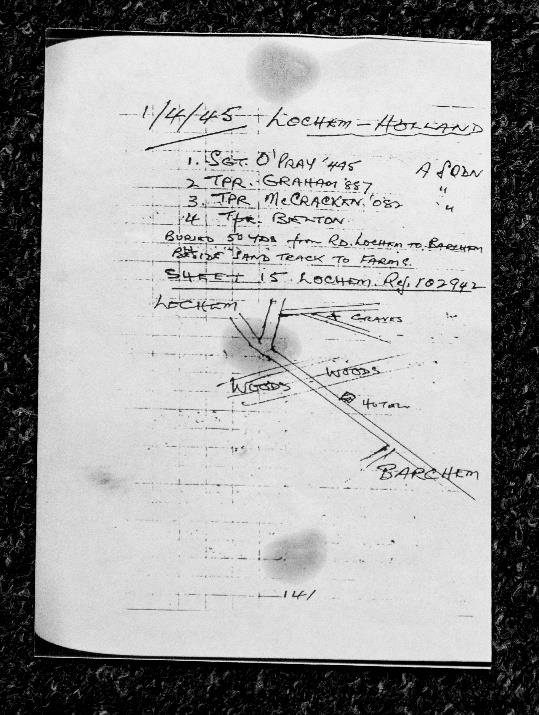 1/4/45 LOCHEM - HOLLAND
1. SGT. O'PRAY '445 A SQDN
2 TPR. GRAHAM '887 "
3. TPR McCRACKEN. '082 "
4 TPR. BENTON
BURIED 50 YDS from RD. LOCHEM TO BARCHEM
BESIDE SAND TRACK TO FARMS.
SHEET 15 LOCHEM. Ref. 102942
LOCHEM
GRAVES
WOODS
WOODS
HOTEL
BARCHEM
141